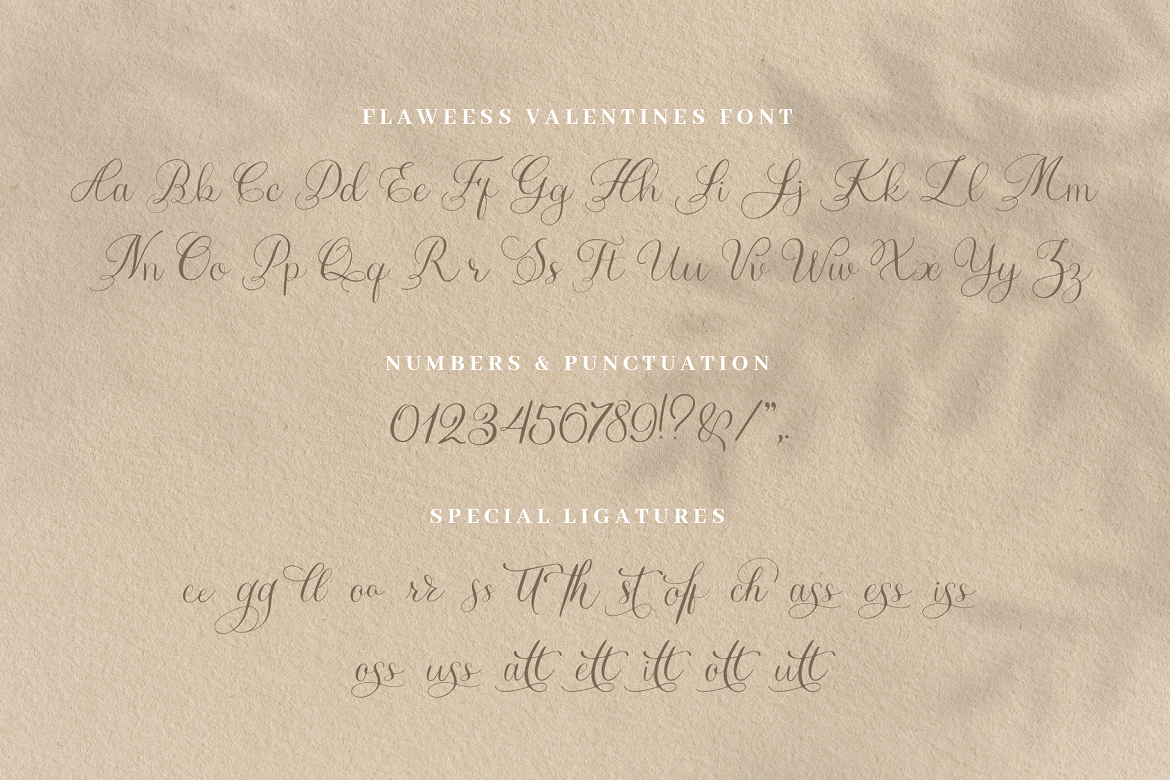 FLAWEESS VALENTINES FONT
Aa Bb Cc Dd Ee Ff Gg Hh Ii Jj Kk Ll Mm
Nn Oo Pp Qq Rr Ss Tt Uu Vv Ww Xx Yy Zz
NUMBERS & PUNCTUATION
0123456789!?&/",.
SPECIAL LIGATURES
ee gg ll oo rr ss tt Th st off ch ass ess iss
oss uss att ett itt ott utt